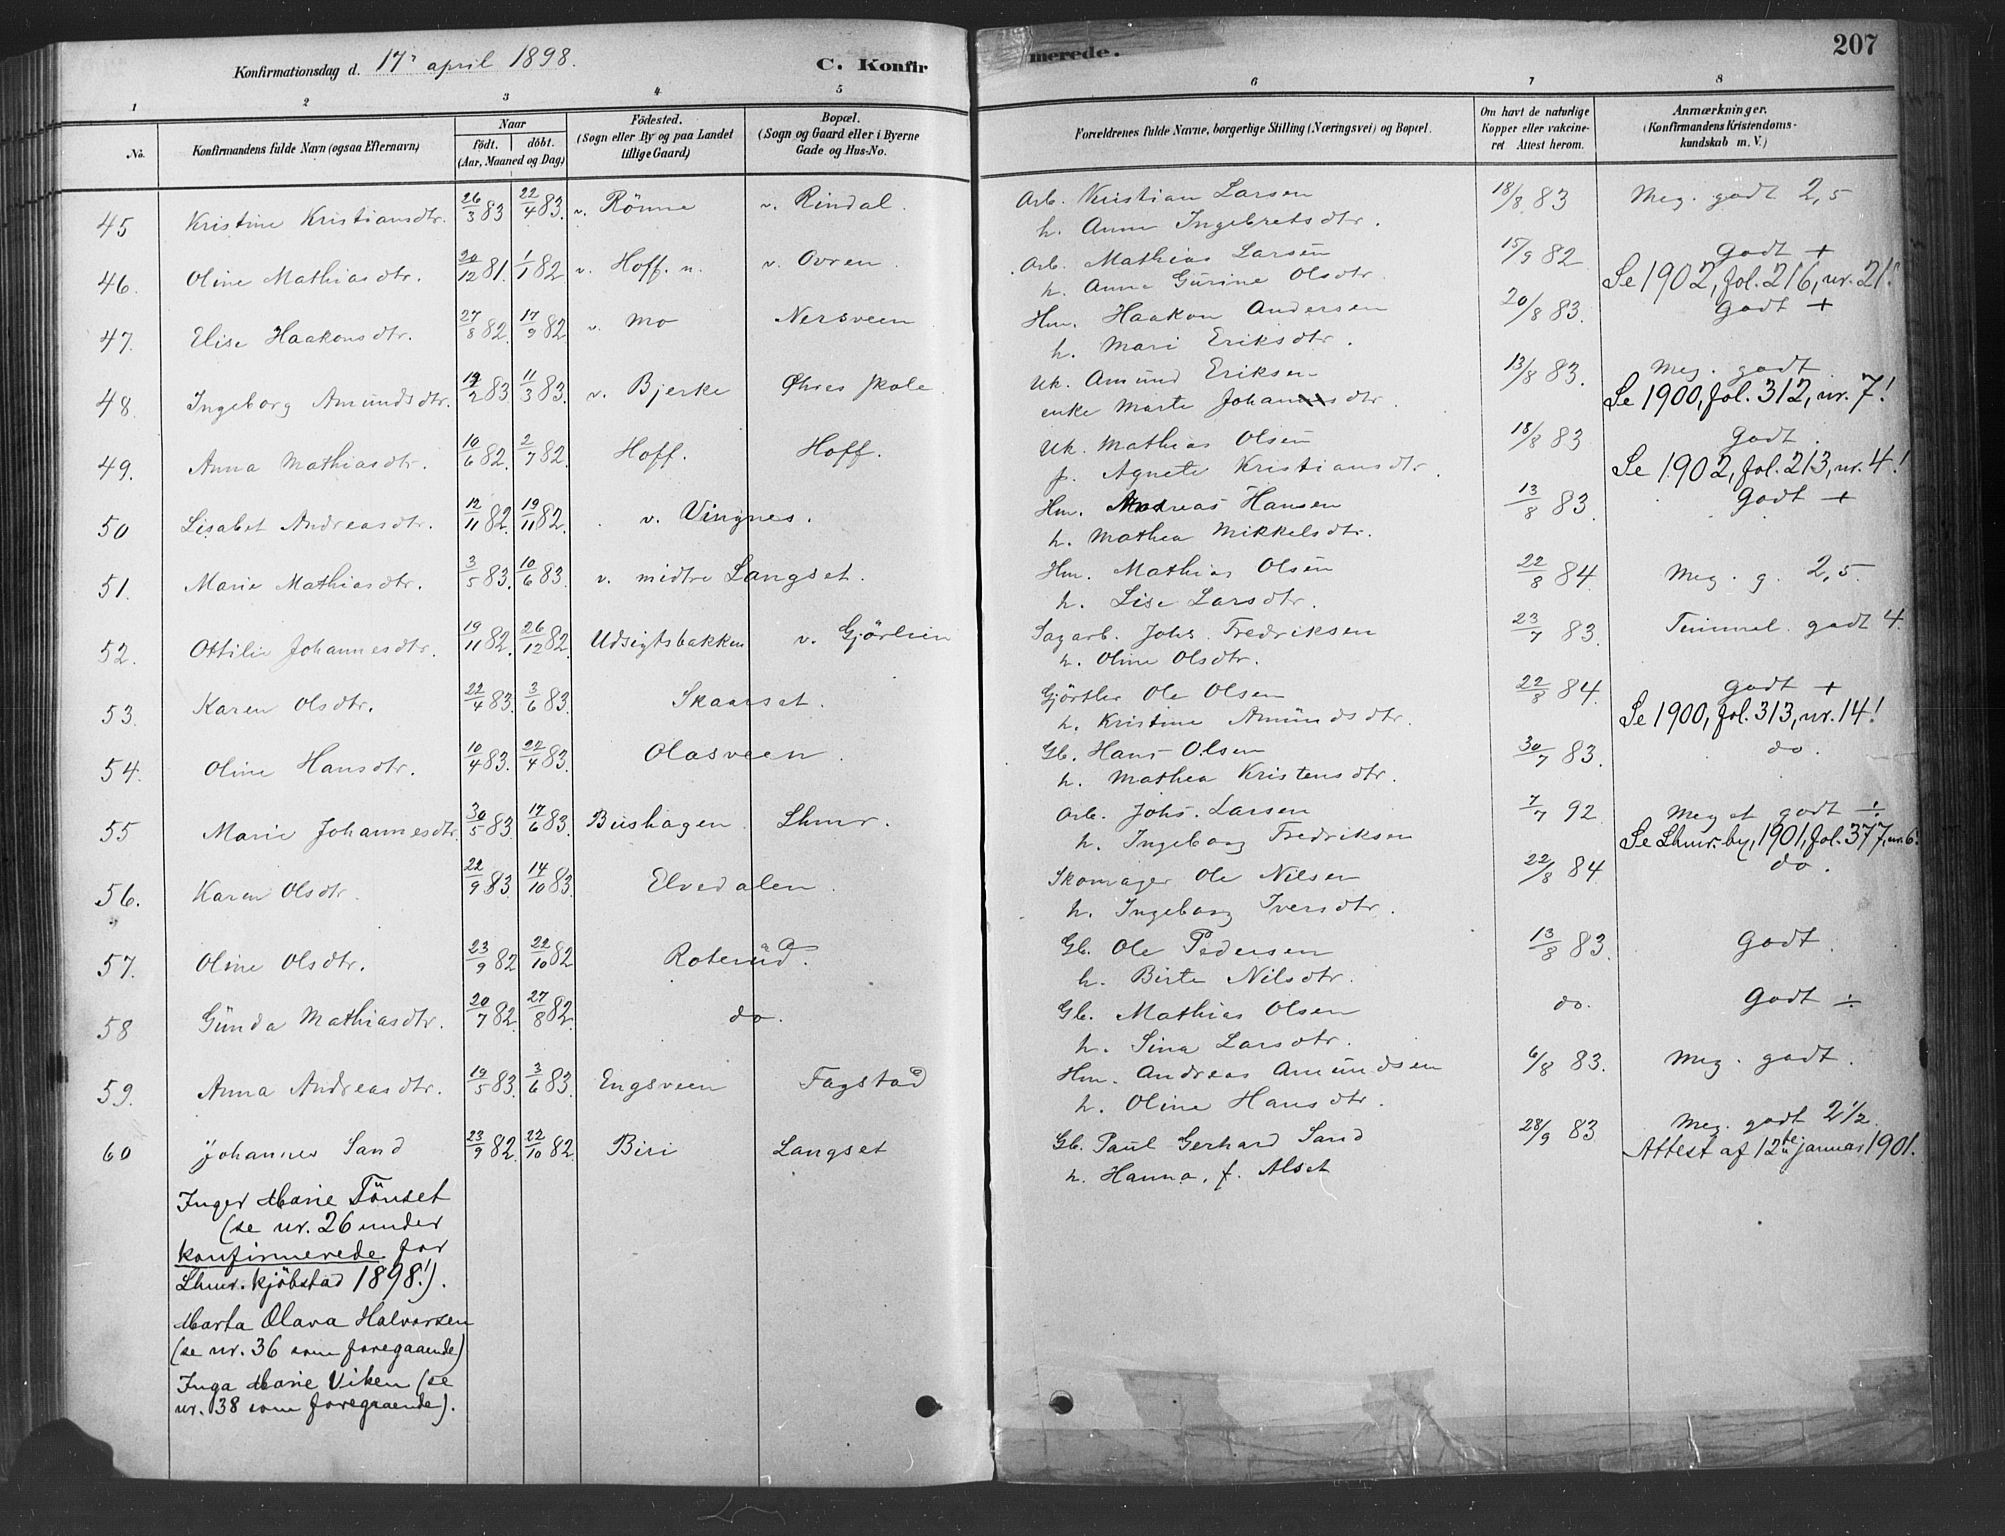 Konfirmationsdag d. 17 april 1898.
C. Konfirmerede.
207
1 2 3 4 5 6 7 8
No.
Konfirmandens fulde Navn (ogsaa Efternavn)
Naar
födt. döbt.
(Aar, Maaned og Dag)
Födested.
(Sogn eller By og paa Landet
tillige Gaard)
Bopæl.
(Sogn og Gaard eller i Byerne
Gade og Hus-No.
Forældrenes fulde Navne, borgerlige Stilling (Næringsvei) og Bopæl.
Om havt de naturlige
Kopper eller vakcine-
ret Attest herom.
Anmærkninger.
(Konfirmandens Kristendoms-
kundskab m. V.)
45 Kristine Kristiansdtr. 26/3 83 22/4 83. v. Rönne v. Rindal. Arb. Kristian Larsen 18/8 83 Meg. godt 2,5
h. Anne Ingebretsdtr.
46. Oline Mathiasdtr. 20/12 81. 1/1 82 v. Hoff. n. v. Ovren Arb. Mathias Larsen 15/9 82 Godt +
h. Anne Gurine Olsdtr. Se 1902, fol. 216, nr. 21!
47. Elise Haakonsdtr. 27/8 82. 17/9 82 v. Mo Nersveen Hm. Haakon Andersen 20/8 83. Godt +
h. Mari Eriksdtr.
48. Ingeborg Amundsdtr. 19/2 83 11/3 83. v. Bjerke Öhres skole Uk. Amund Eriksen 13/8 83. Meg. godt
enke Marte Johansdtr. Se 1900, fol. 312, nr. 7!
49. Anna Mathiasdtr. 10/6 82. 2/7 82. Hoff. Hoff. Uk. Mathias Olsen 18/8 83 Godt.
p. Agnete Kristiansdtr. Se 1902, fol. 213, nr. 4!
50 Lisabet Andreasdtr. 12/11 82. 19/11 82. v. Vingnes. Hm. Andreas Hansen 13/8 83. Godt +
h. Mathea Mikkelsdtr.
51. Marie Mathiasdtr. 3/5 83. 10/6 83. v. midtre Langset. Hm. Mathias Olsen 22/8 84 Meg. g. 2,5.
h. Lise Larsdtr.
52. Ottilie Johannesdtr. 19/11 82. 26/12 82 Udsigtsbakken v. Gjörlien Sagarb. Johs. Fredriksen 23/7 83. Temmel. godt 4.
h. Oline Olsdtr.
53. Karen Olsdtr. 22/4 83. 3/6 83. Skaarset. Gjörtler Ole Olsen 22/8 84. Godt +
h. Kristine Amundsdtr. Se 1900, fol. 313, nr. 14!
54. Oline Hansdtr. 10/4 83. 22/4 83. Olasveen. Gb. Hans Olsen 30/7 83. do.
h. Mathea Kristensdtr.
55 Marie Johannesdtr. 30/5 83 17/6 83. Bushagen Lhmr. Arb. Johs. Larsen 7/7 92. Meget godt ÷
h. Ingeborg Fredriksen Se Lhmr. by, 1901, fol. 377, nr. 6.
56. Karen Olsdtr. 22/9 83 14/10 83. Elvedalen. Skomager Ole Nilsen 22/8 84. do.
h. Ingeborg Iversdtr.
57. Oline Olsdtr. 23/9 82 22/10 82 Roterud. Gb. Ole Pedersen 13/8 83. Godt.
h. Birte Nilsdtr.
58 Günda Mathiasdtr. 20/7 82. 27/8 82. do. Gb. Mathias Olsen do. Godt ÷
h. Sina Larsdtr.
59. Anna Andreasdtr. 19/5 83. 3/6 83. Engsveen Fagstad Hm. Andreas Amundsen 6/8 83. Meg. godt.
h. Oline Hansdtr.
60 Johannes Sand 23/9 82. 22/10 82. Biri Langset Gb. Paul Gerhard Sand 28/9 83 Meg. godt 2 1/2.
h. Hanna, f. Alset Attest af 12te januar 1901.
Inger Marie Tönset
(se nr. 26 under
konfirmerede for
Lhmr. kjöbstad 1898!).
Marta Olava Halvorsen
(se nr. 36 som foregaaende)
Inga Marie Viken (se
nr. 38 som foregaaende).